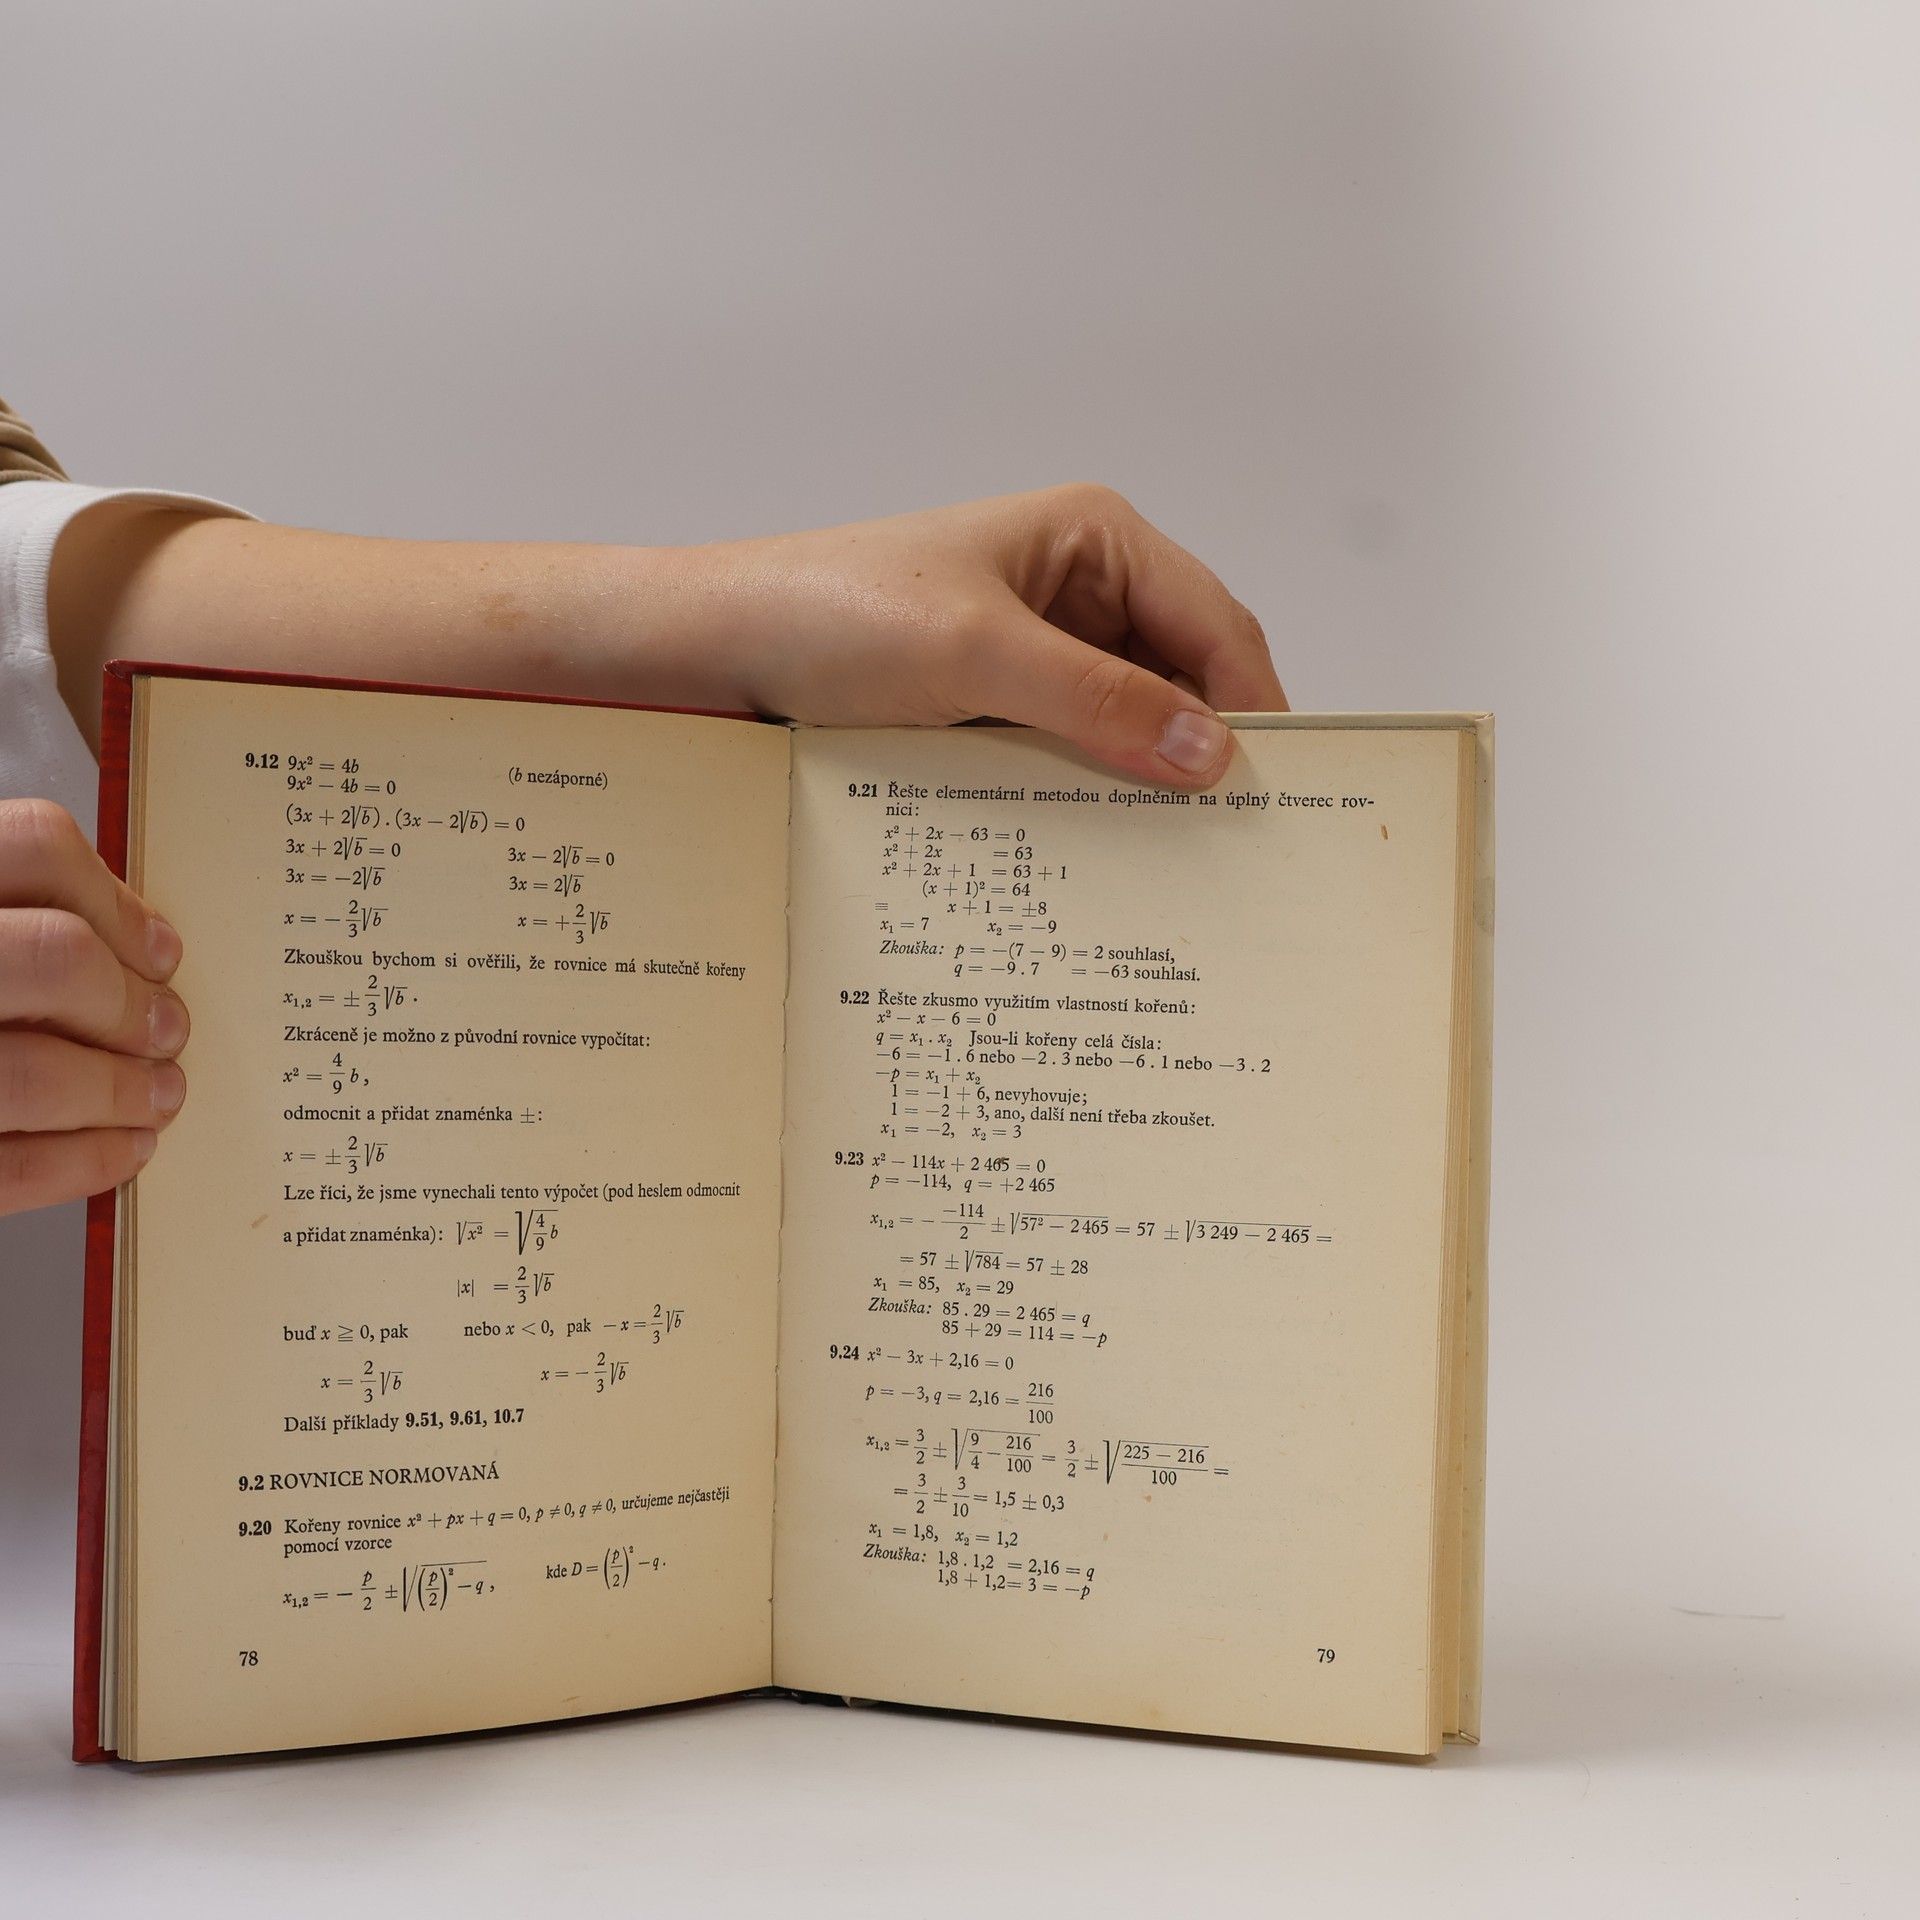 9.12 9x² = 4b (b nezáporné)
9x² − 4b = 0
(3x + 2√b) . (3x − 2√b) = 0
3x + 2√b = 0 3x − 2√b = 0
3x = −2√b 3x = 2√b
x = − 2/3 √b x = + 2/3 √b
Zkouškou bychom si ověřili, že rovnice má skutečně kořeny
x₁,₂ = ± 2/3 √b .
Zkráceně je možno z původní rovnice vypočítat:
x² = 4/9 b,
odmocnit a přidat znaménka ±:
x = ± 2/3 √b
Lze říci, že jsme vynechali tento výpočet (pod heslem odmocnit
a přidat znaménka): √x² = √(4/9 b)
|x| = 2/3 √b
buď x ≧ 0, pak nebo x < 0, pak −x = 2/3 √b
x = 2/3 √b x = − 2/3 √b
Další příklady 9.51, 9.61, 10.7
9.2 ROVNICE NORMOVANÁ
9.20 Kořeny rovnice x² + px + q = 0, p ≠ 0, q ≠ 0, určujeme nejčastěji
pomocí vzorce
x₁,₂ = − p/2 ± √((p/2)² − q), kde D = (p/2)² − q.
78
9.21 Řešte elementární metodou doplněním na úplný čtverec rov-
nici:
x² + 2x − 63 = 0
x² + 2x = 63
x² + 2x + 1 = 63 + 1
(x + 1)² = 64
≡ x + 1 = ±8
x₁ = 7 x₂ = −9
Zkouška: p = −(7 − 9) = 2 souhlasí,
q = −9 . 7 = −63 souhlasí.
9.22 Řešte zkusmo využitím vlastností kořenů:
x² − x − 6 = 0
q = x₁ . x₂ Jsou-li kořeny celá čísla:
−6 = −1 . 6 nebo −2 . 3 nebo −6 . 1 nebo −3 . 2
−p = x₁ + x₂
1 = −1 + 6, nevyhovuje;
1 = −2 + 3, ano, další není třeba zkoušet.
x₁ = −2, x₂ = 3
9.23 x² − 114x + 2 465 = 0
p = −114, q = +2 465
x₁,₂ = − −114/2 ± √(57² − 2 465) = 57 ± √(3 249 − 2 465) =
= 57 ± √784 = 57 ± 28
x₁ = 85, x₂ = 29
Zkouška: 85 . 29 = 2 465 = q
85 + 29 = 114 = −p
9.24 x² − 3x + 2,16 = 0
p = −3, q = 2,16 = 216/100
x₁,₂ = 3/2 ± √(9/4 − 216/100) = 3/2 ± √((225 − 216)/100) =
= 3/2 ± 3/10 = 1,5 ± 0,3
x₁ = 1,8, x₂ = 1,2
Zkouška: 1,8 . 1,2 = 2,16 = q
1,8 + 1,2 = 3 = −p
79